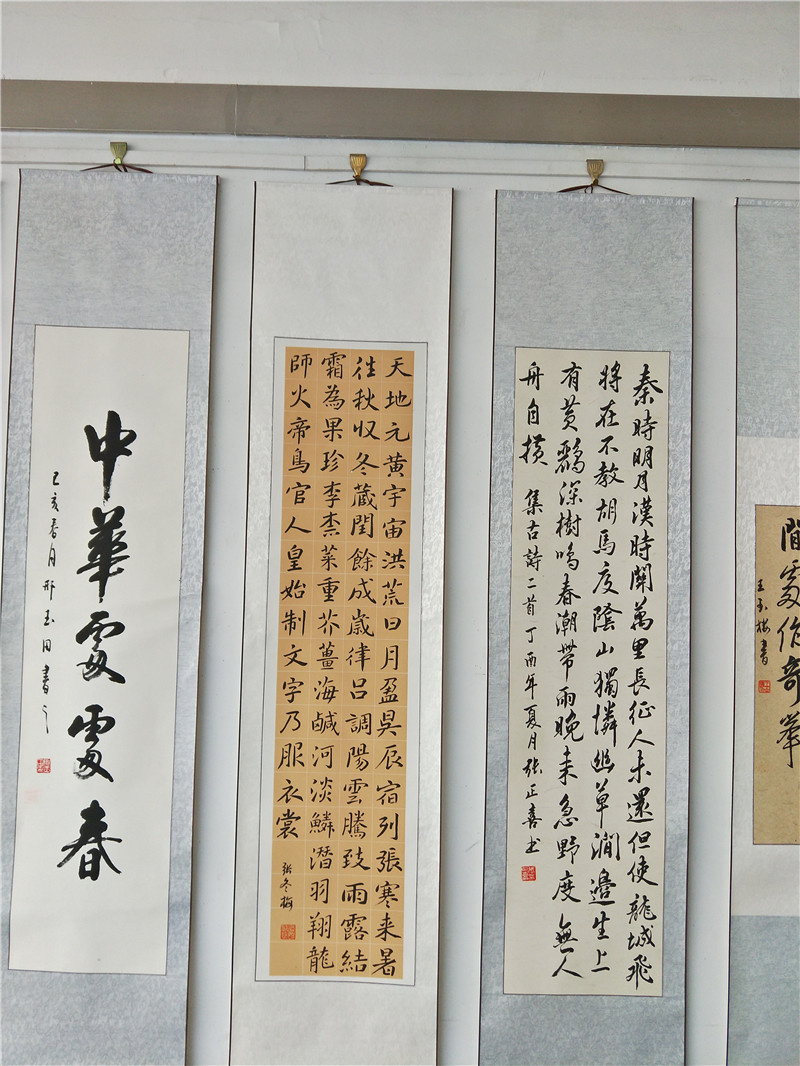 中華處處春
己亥春月邢玉田書之
天地元黄宇宙洪荒日月盈昃辰宿列張寒来暑
往秋収冬蔵閏餘成歲律吕調陽雲騰致雨露結
霜為果珍李柰菜重芥薑海鹹河淡鱗潛羽翔龍
師火帝鳥官人皇始制文字乃服衣裳
張冬梅
秦時明月漢時關萬里長征人未還但使龍城飛
將在不教胡馬度陰山獨憐幽草澗邊生上
有黄鸝深樹鳴春潮帶雨晚来急野度無人
舟自横 集古詩二首丁酉年夏月張正喜书
間處作奇峯
王玉梅書